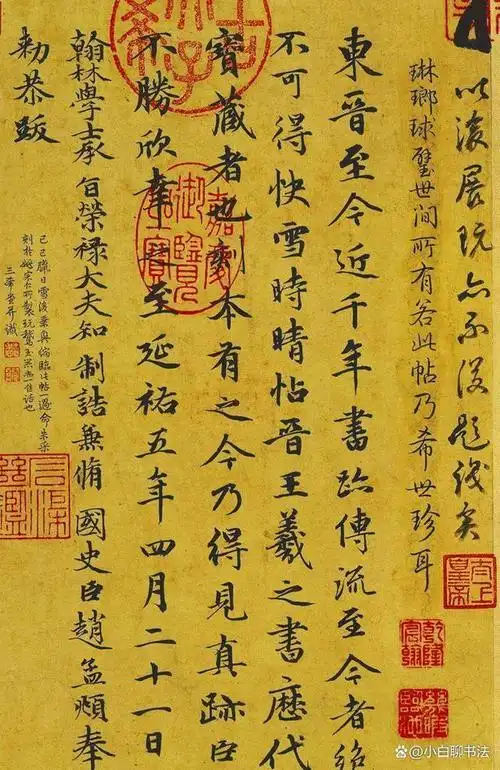 以後展玩亦不復題識矣
琳瑯球璧世間所有若此帖乃希世珍耳
太上皇帝
乾隆宸翰
東晉至今近千年書跡傳流至今者絕
不可得快雪時晴帖晉王羲之書歷代
寶藏者也刻本有之今乃得見真跡臣
嘉慶御覽之寶
不勝欣幸之至延祐五年四月二十一日
翰林學士承旨榮祿大夫知制誥兼脩國史臣趙孟頫奉
勑恭跋
己巳臘日雪後 臨此帖一過命朱采
三希堂并識
小白聊书法